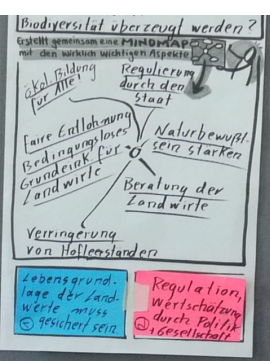 Biodiversität überzeugt werden?
Erstellt gemeinsam eine MINDMAP
mit den wirklich wichtigen Aspekte
ökol. Bildung
für Alle!
Regulierung
durch den
Staat
Faire Entlohnung
Bedingungsloses
Grundeink. für
Landwirte
Naturbewußt-
sein stärken
Beratung der
Landwirte
Verringerung
von Hofleerständen
Lebensgrund-
lage der Land-
werte muss
gesichert sein
Regulation,
Wertschätzung
durch Politik
Gesellschaft